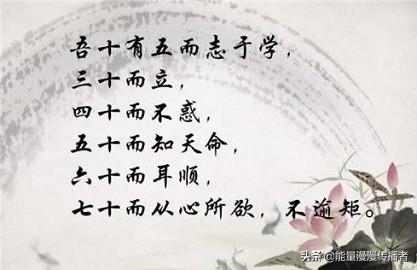 吾十有五而志于学，
三十而立，
四十而不惑，
五十而知天命，
六十而耳顺，
七十而从心所欲，不逾矩。
头条 @能量漫漫传播者